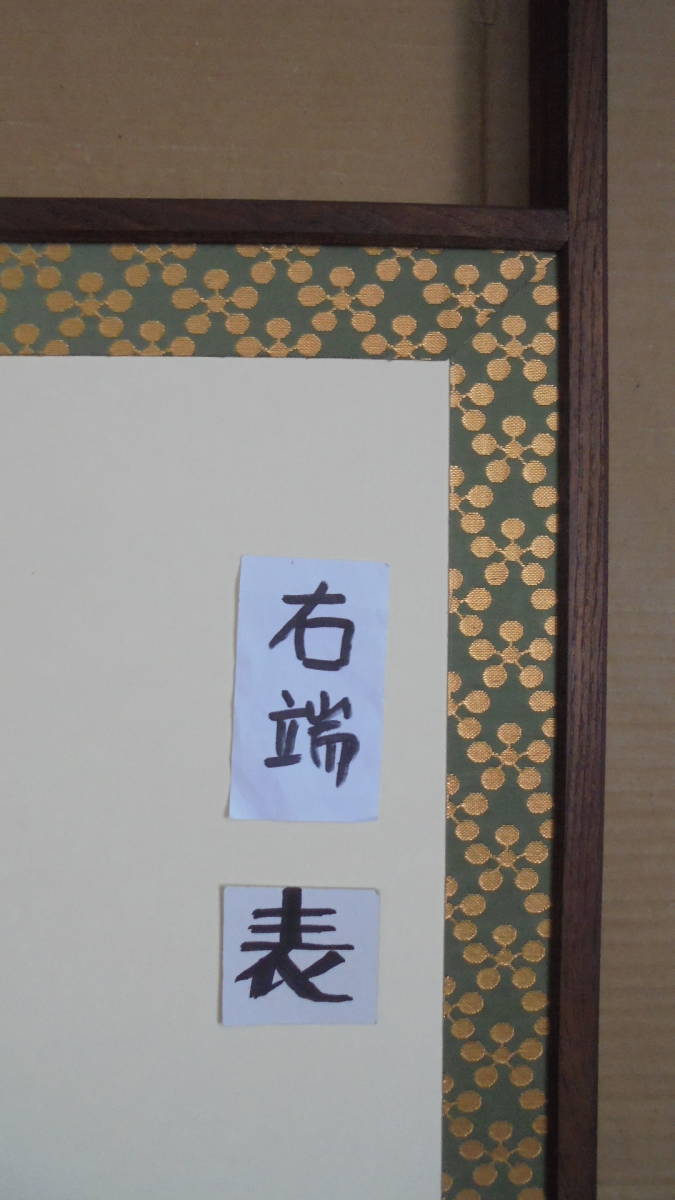 右端
表